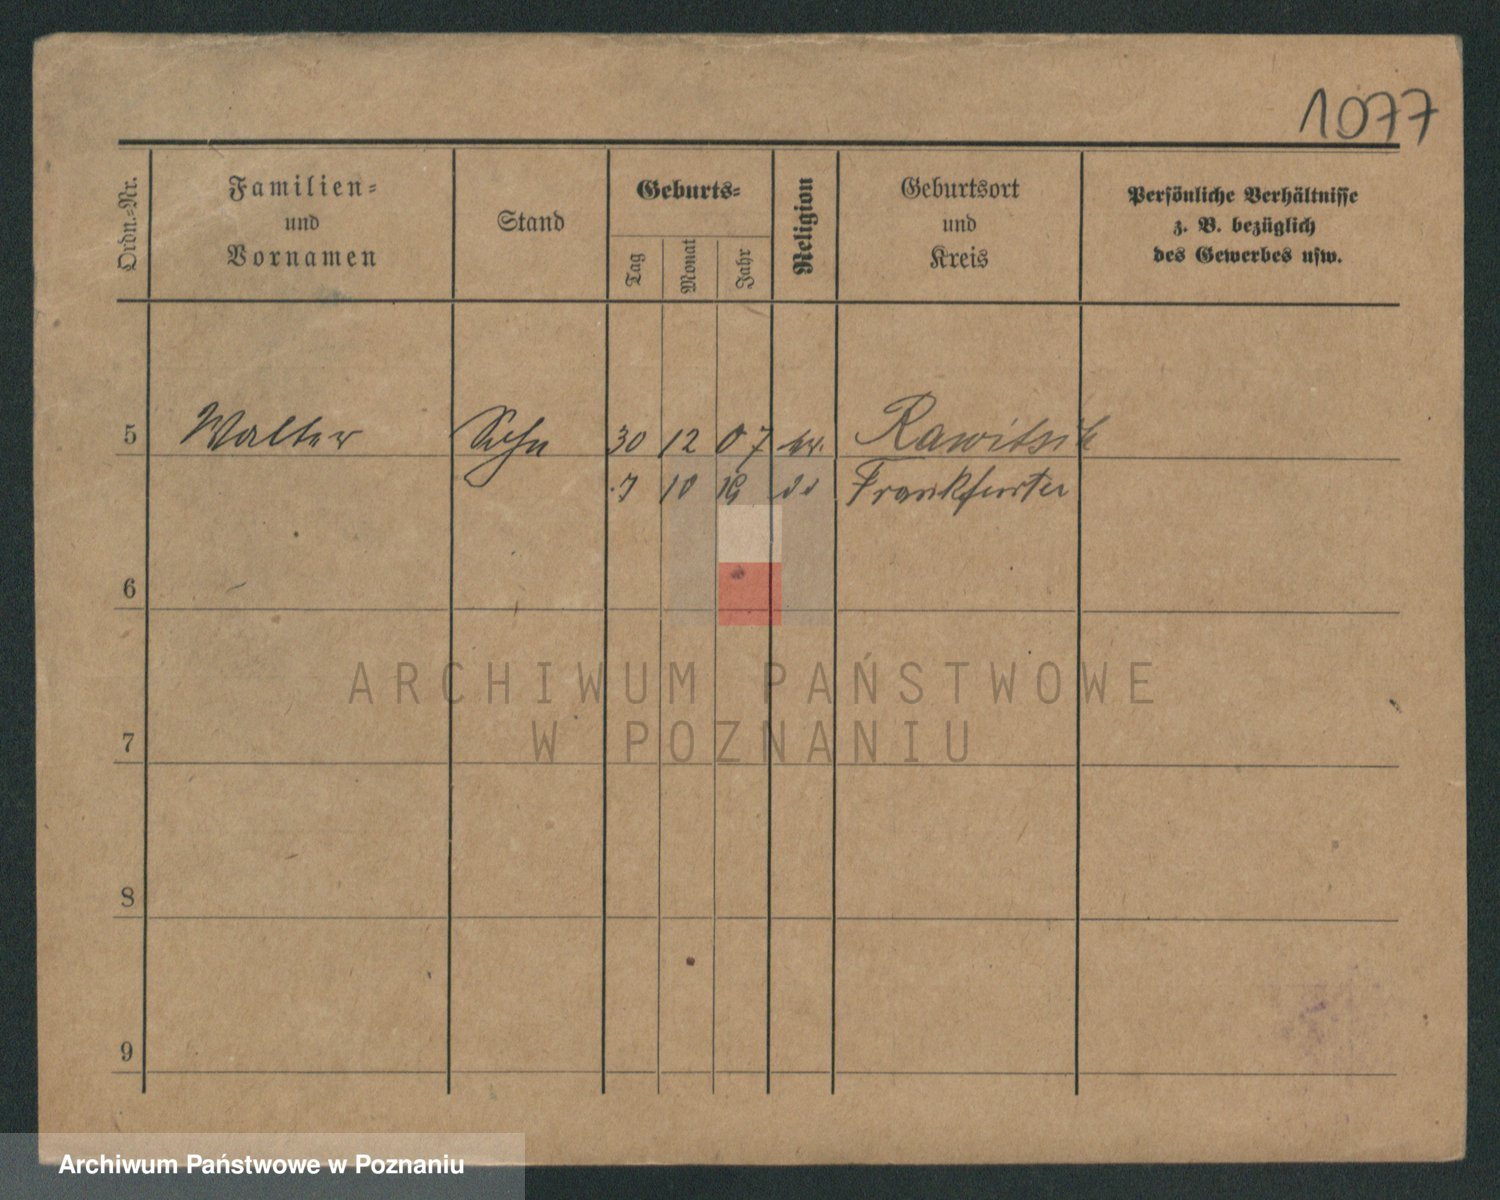 1077
Ordn.-Nr.
Familien-
und
Vornamen
Stand
Geburts-
Tag Monat Jahr
Religion
Geburtsort
und
Kreis
Persönliche Verhältnisse
z. B. bezüglich
des Gewerbes usw.
5 Walter Sohn 30 12 07 Rawitsch
7 10 19 do Frankfurter
6
ARCHIWUM PAŃSTWOWE
W POZNANIU
7
8
9
Archiwum Państwowe w Poznaniu